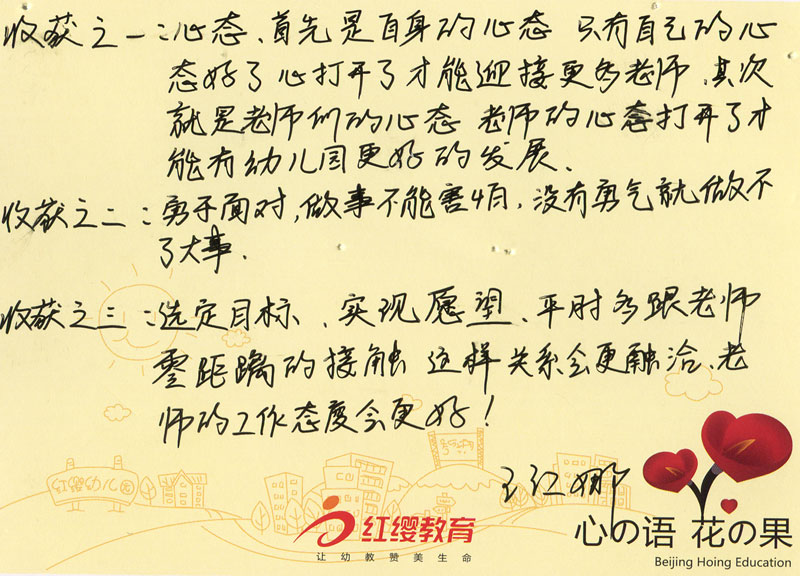 收获之一：心态、首先是自身的心态 只有自己的心
态好了心打开了才能迎接更多老师、其次
就是老师们的心态 老师的心态打开了才
能有幼儿园更好的发展、
收获之二：勇于面对，做事不能害怕，没有勇气就做不
了大事．
收获之三：选定目标、实现愿望、平时多跟老师
零距离的接触 这样关系会更融洽、老
师的工作态度会更好！
王红娜
红缨幼儿园
红缨教育
让幼教赞美生命
心の语 花の果
Beijing Hoing Education